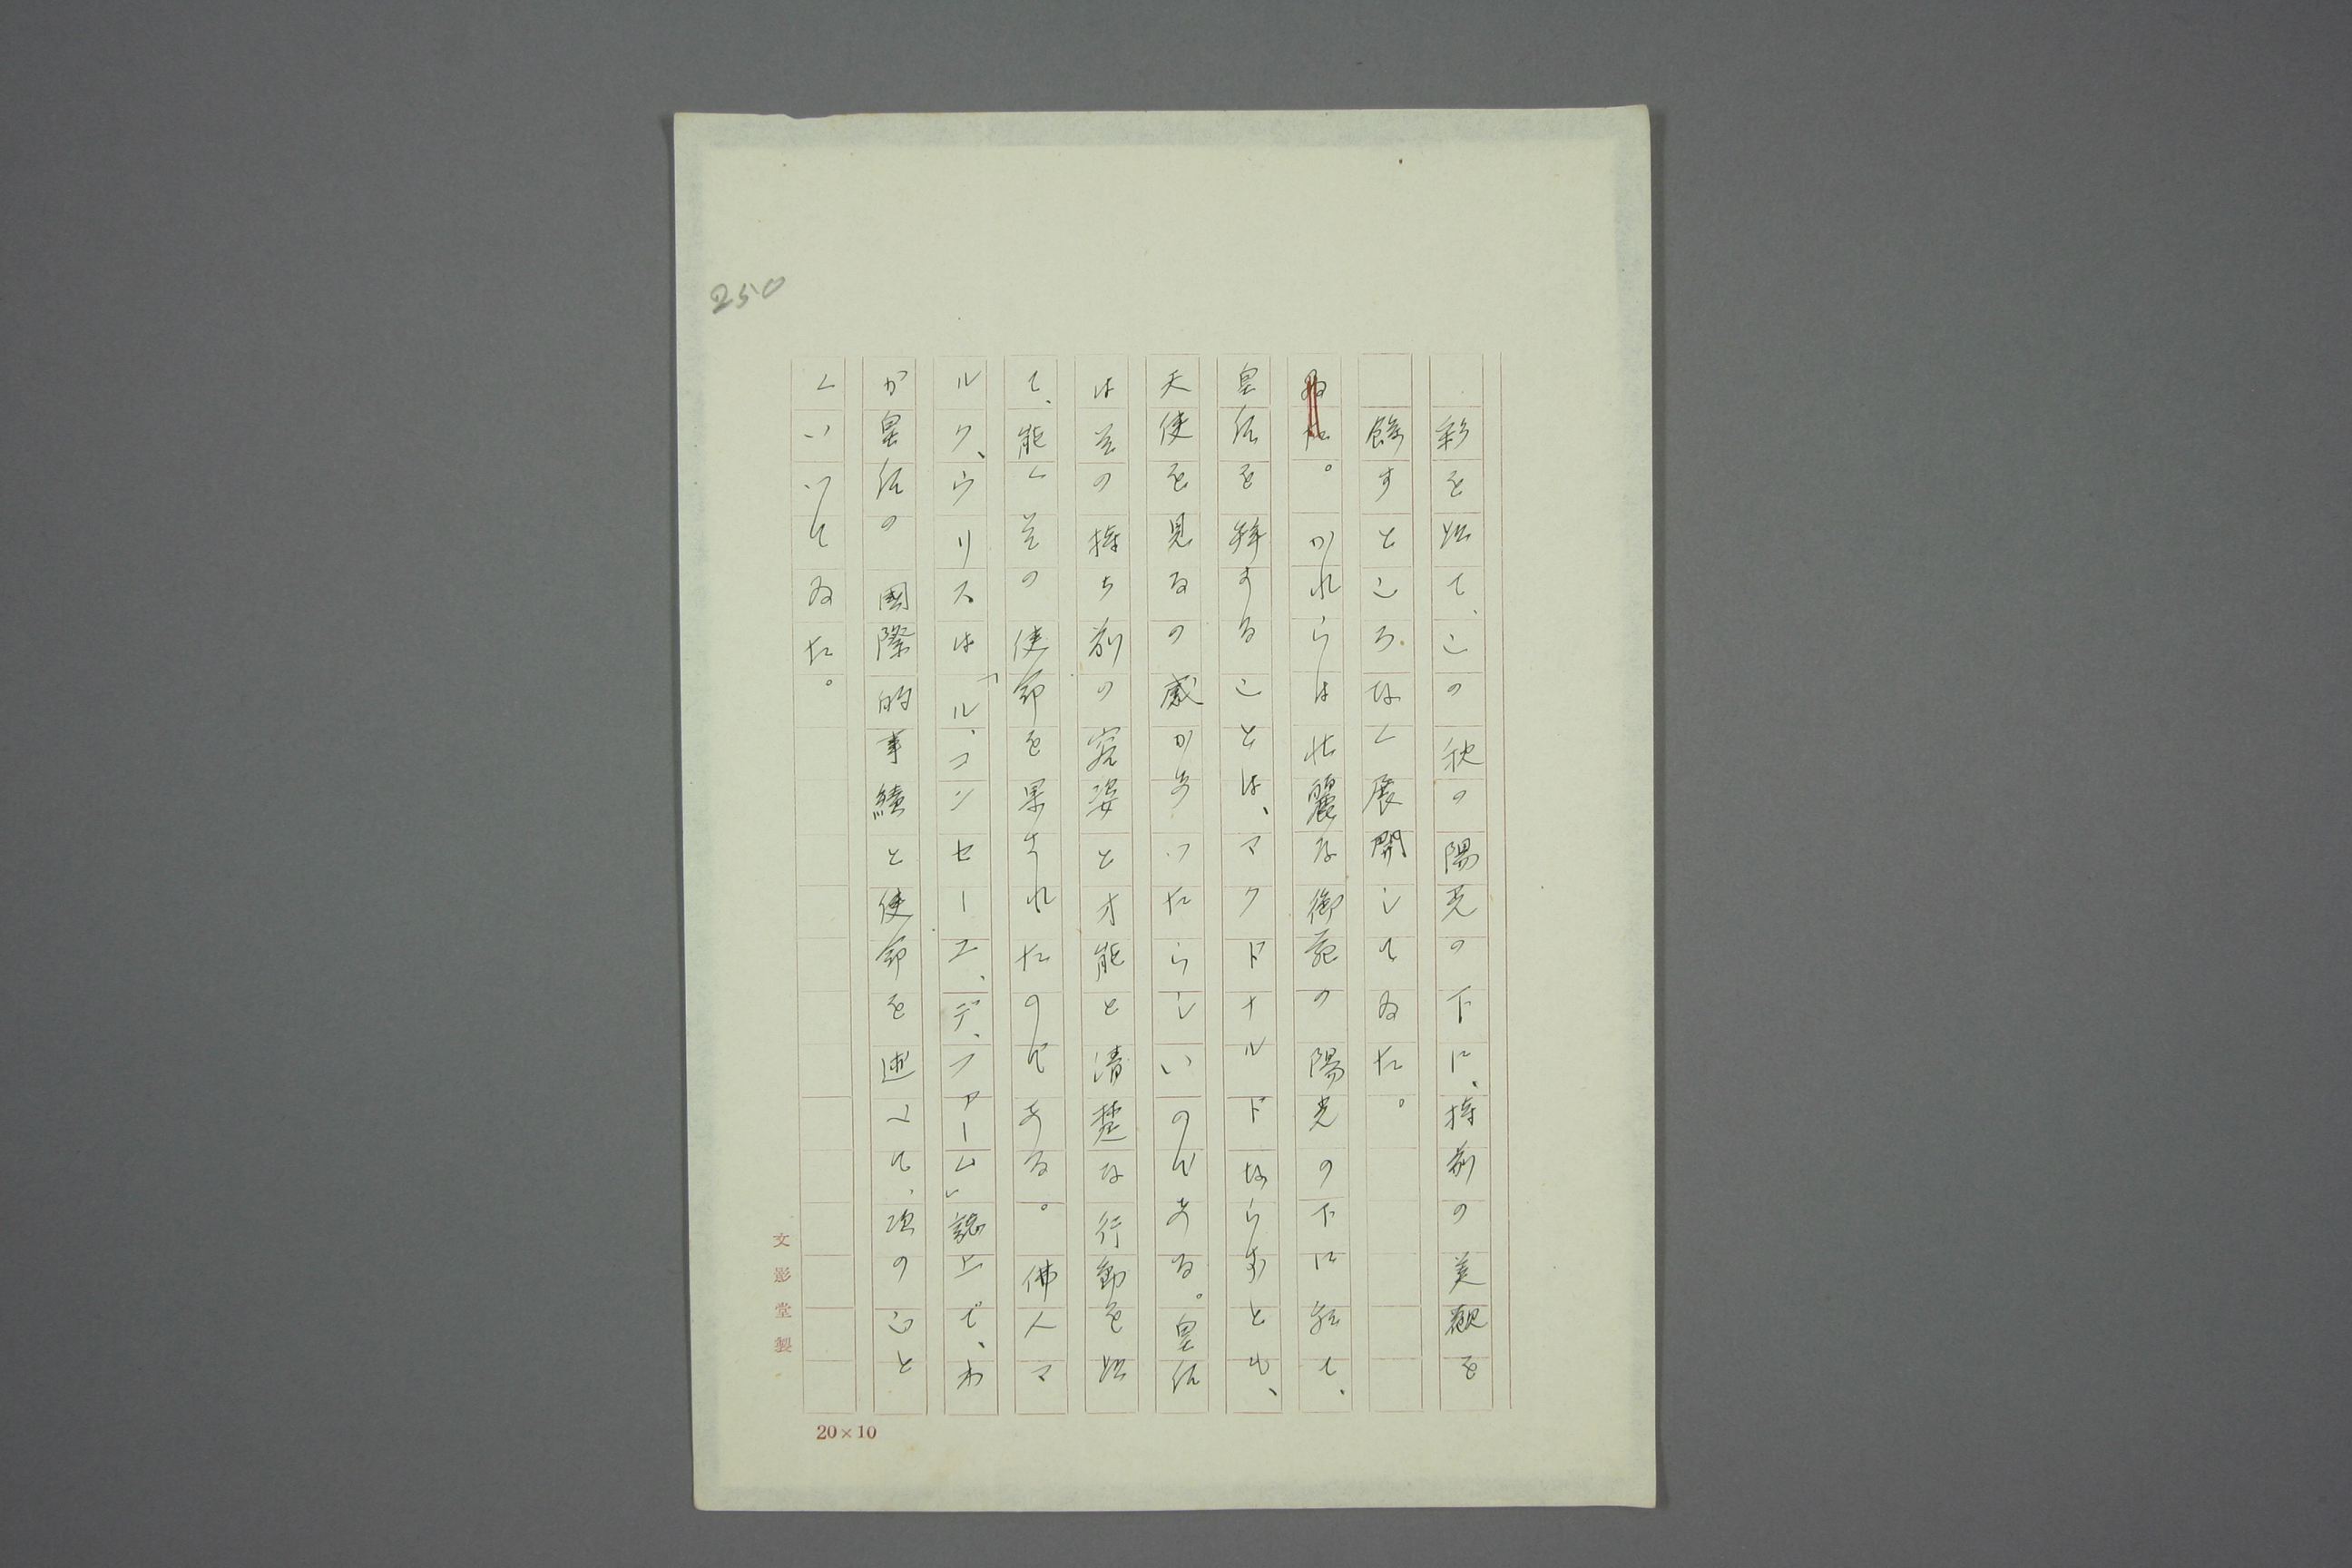 250
彩を以て、この秋の陽光の下に、持前の美観を
餘すところなく展開してゐた。
ゐた。かれらは壮麗な御苑の陽光の下に於て、
皇后を拝することは、マクドナルドならずとも、
天使を見るの感があつたらしいのである。皇后
は其の持ち前の容姿と才能と清楚な行動を以
て、能く其の使命を果されたのである。佛人マ
ルク、ウリスは「ル、コンセーエ、デ、ファーム」誌上で、わ
が皇后の國際的事績と使命を述べて、次のごと
くいつてゐた。
文影堂製
20×10